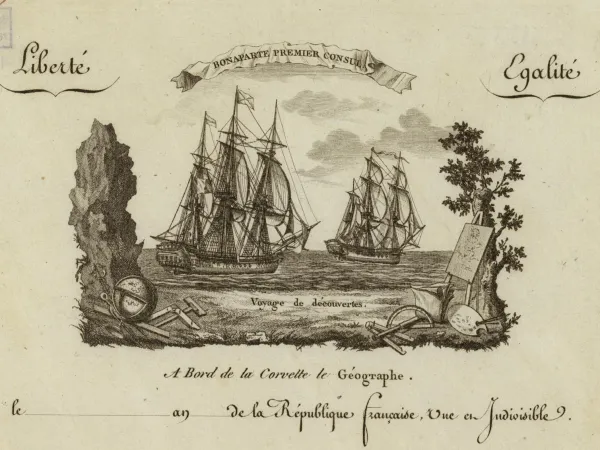 BONAPARTE PREMIER CONSUL.
Liberté
Egalité
Voyage de découvertes.
A Bord de la Corvette le Géographe.
le an de la République française, Une et Indivisible.